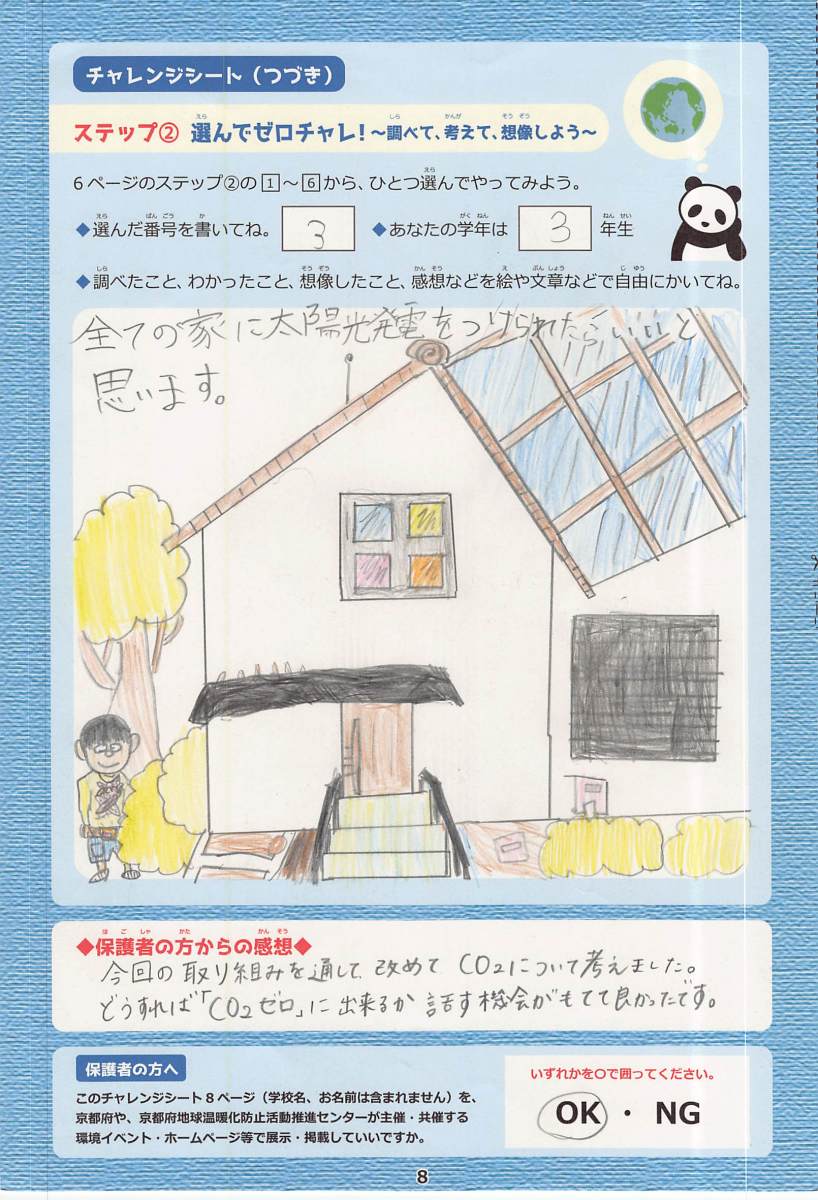 チャレンジシート（つづき）
ステップ② 選んでゼロチャレ！～調べて、考えて、想像しよう～
6ページのステップ②の1～6から、ひとつ選んでやってみよう。
◆選んだ番号を書いてね。 3 ◆あなたの学年は 3 年生
◆調べたこと、わかったこと、想像したこと、感想などを絵や文章などで自由にかいてね。
全ての家に太陽光発電をつけられたらいいと
思います。
◆保護者の方からの感想◆
今回の取り組みを通して、改めてCO2について考えました。
どうすれば「CO2ゼロ」に出来るか話す機会がもてて良かったです。
保護者の方へ
このチャレンジシート8ページ（学校名、お名前は含まれません）を、
京都府や、京都府地球温暖化防止活動推進センターが主催・共催する
環境イベント・ホームページ等で展示・掲載していいですか。
いずれかを〇で囲ってください。
OK ・ NG
8